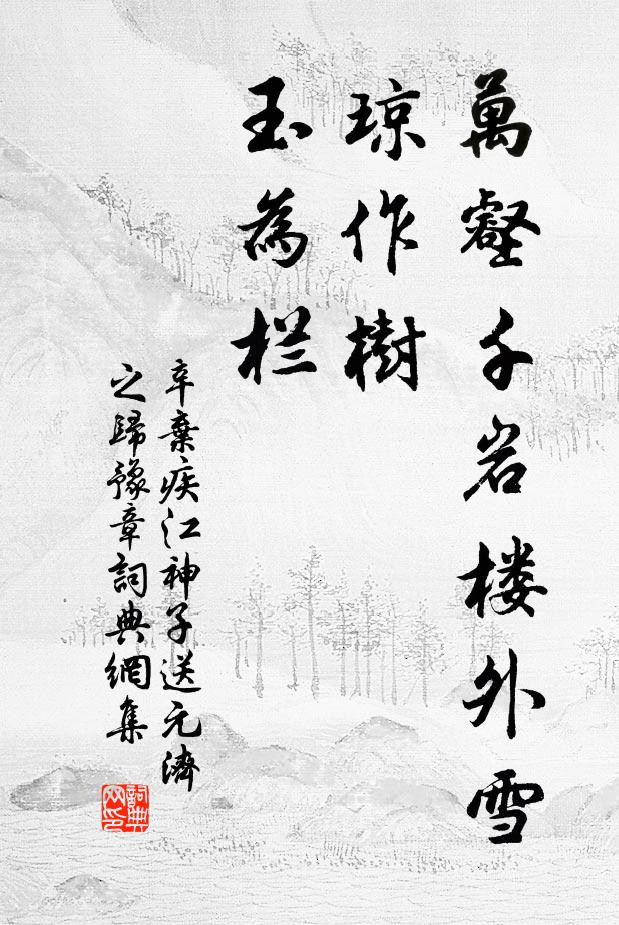 萬壑千岩楼外雪
琼作樹
玉為栏
辛棄疾江神子送元濟
之歸豫章詞典網集
詞典网印